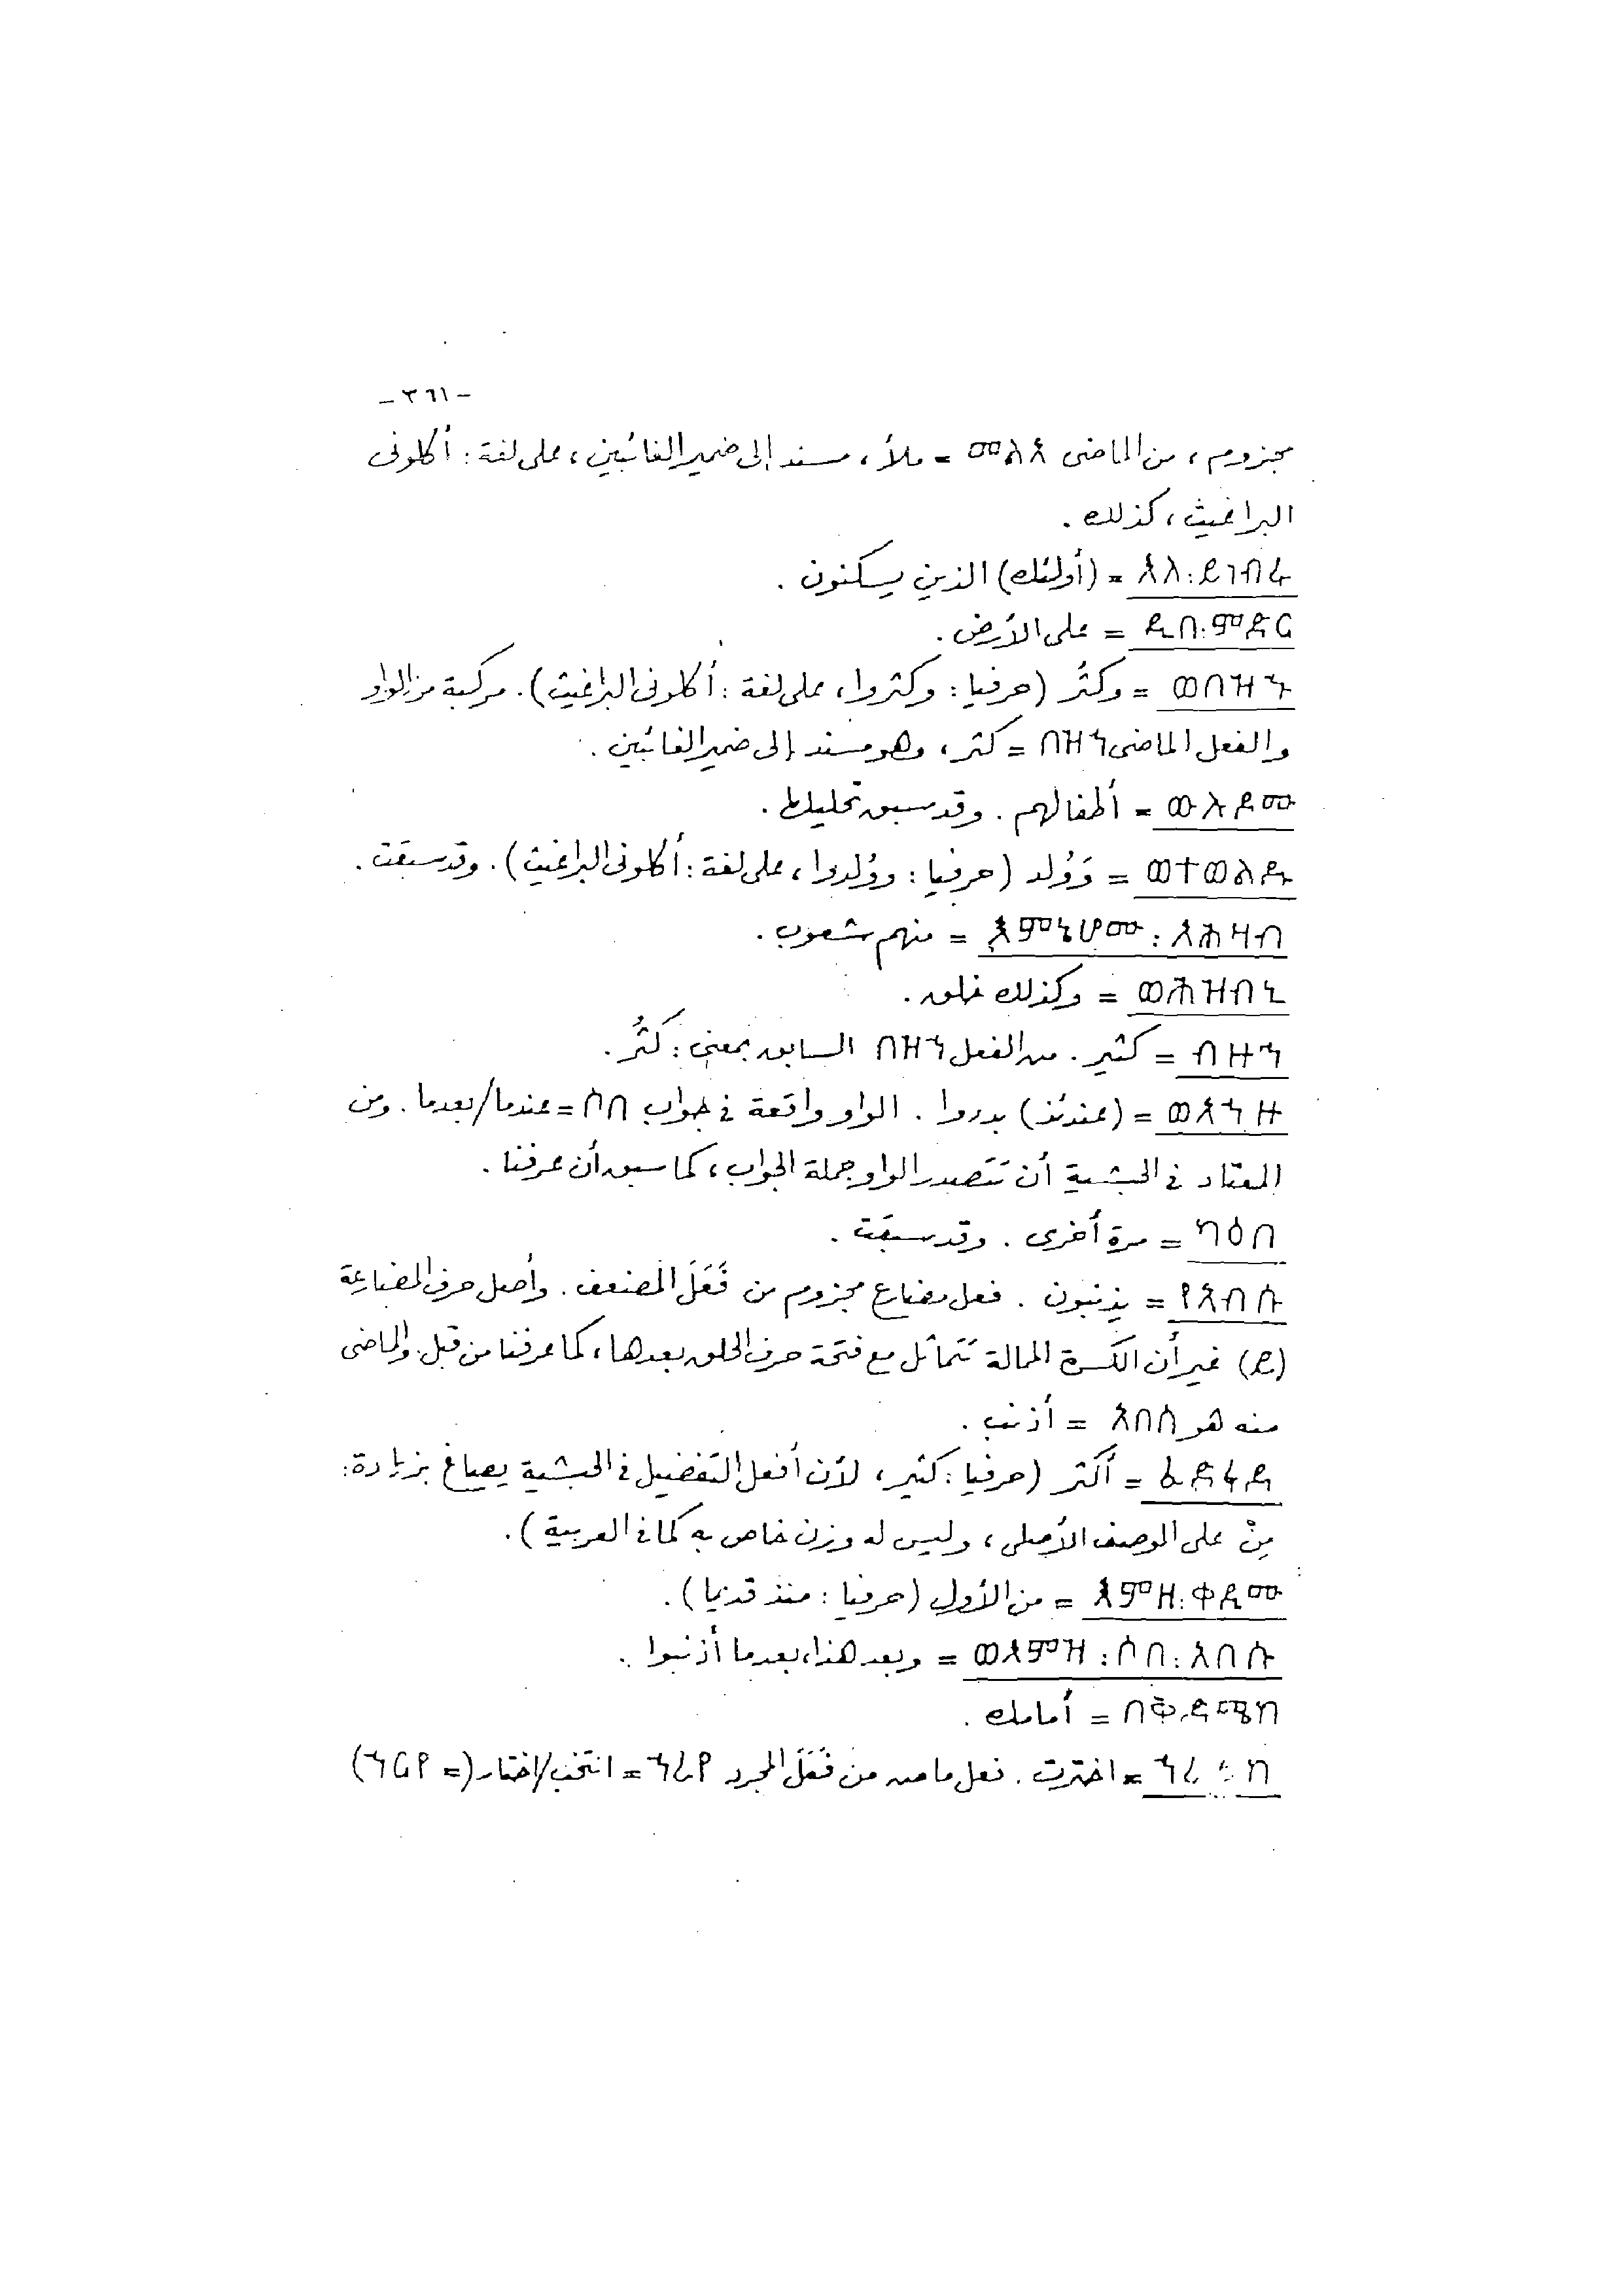 - ٣٦١ -
مجزوم ، من الماضى መልአ = ملأ ، مسند إلى ضمير الغائبين ، على لغة : أكلونى
البراغيث ، كذلك .
እለ:ይነብሩ = (أولئك) الذين يسكنون .
ዲበ:ምድር = على الأرض .
ወበዝኁ = وكثُر (حرفيا : وكثروا ، على لغة : أكلونى البراغيث) . مركبة من الواو
والفعل الماضى በዝኀ = كثر ، وهو مسند إلى ضمير الغائبين .
ውሉዶሙ = أطفالهم . وقد سبق تحليلها .
ወተወልዱ = وَوُلد (حرفيا : وولدوا ، على لغة : أكلونى البراغيث) . وقد سبقت .
እምኔሆሙ : አሕዛብ = منهم شعوب .
ወሕዝብኒ = وكذلك خلق .
ብዙኅ = كثير . من الفعل በዝኀ السابق بمعنى : كَثُر .
ወአኀዙ = (عندئذ) بدءوا . الواو واقعة فى جواب ሶበ = عندما/بعدما . ومن
المعتاد فى الحبشية أن تتصدر الواو جملة الجواب ، كما سبق أن عرفنا .
ካዕበ = مرة أخرى . وقد سبقت .
የአብሱ = يذنبون . فعل مضارع مجزوم من فَعَّلَ المضعف . وأصل حرف المضارعة
(ይ) غير أن الكسرة الممالة تتماثل مع فتحة حرف الحلق بعدها ، كما عرفنا من قبل . والماضى
منه هو አበሰ = أذنب .
ፈድፋደ = أكثر (حرفيا : كثير ، لأن أفعل التفضيل فى الحبشية يصاغ بزيادة :
مِنْ على الوصف الأصلى ، وليس له وزن خاص به كما فى العربية ) .
እምዝ:ቀዲሙ = من الأول (حرفيا : منذ قديما) .
ወእምዝ : ሶበ : አበሱ = وبعد هذا ، بعدما أذنبوا .
በቅድሜከ = أمامك .
= اخترت . فعل ماض من فَعَلَ المجرد ኀረየ = انتخب/اختار (= ኀርየ)